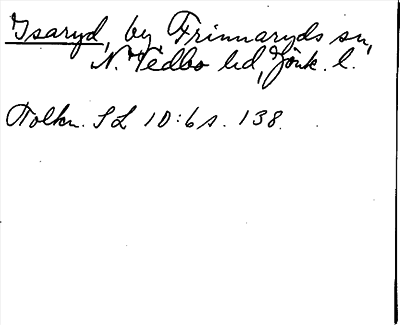 Isaryd, by, Frinnaryds sn,
N. Vedbo hd, Jönk. l.
Tolkn. SL 10:6 s. 138.